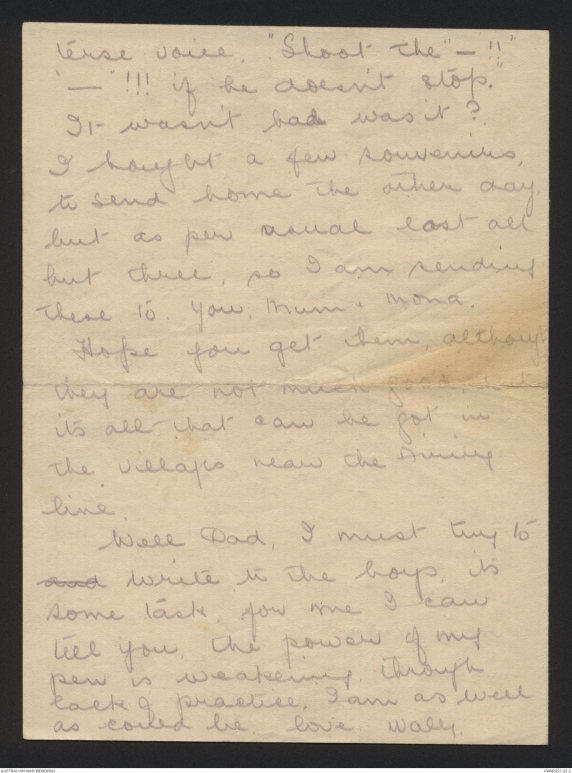 terse voice, "Shoot the "— !!"
"— "!!! if he doesn't stop."
It wasn't bad was it?
I bought a few souvenirs,
to send home the other day
but as per usual lost all
but three, so I am sending
these to you, Mum & Mona.
Hope you get them, although
they are not much good, but
its all that can be got in
the villages near the firing
line.
Well Dad, I must try to
and write to the boys, its
some task for me I can
tell you, the power of my
pen is weakening through
lack of practice. I am as well
as could be. love Wally.
AUSTRALIAN WAR MEMORIAL